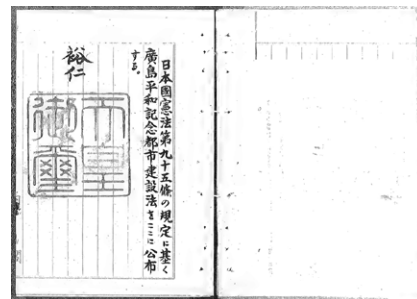 日本國憲法第九十五條の規定に基く
廣島平和記念都市建設法をここに公布
する。
裕仁
天皇
御璽